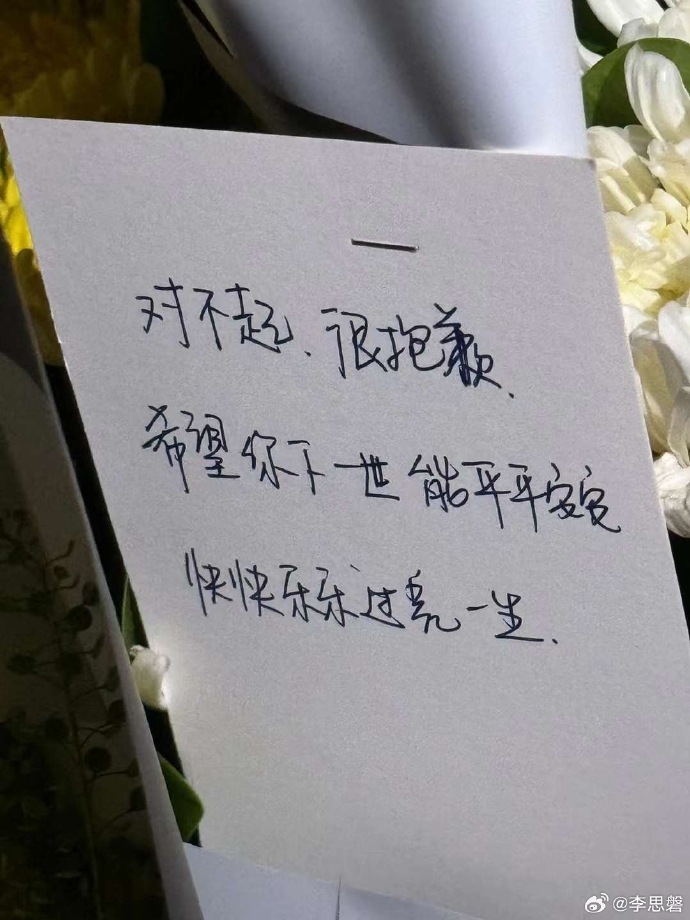 对不起、很抱歉.
希望你下一世能平平安安
快快乐乐过完一生.
@李思磐